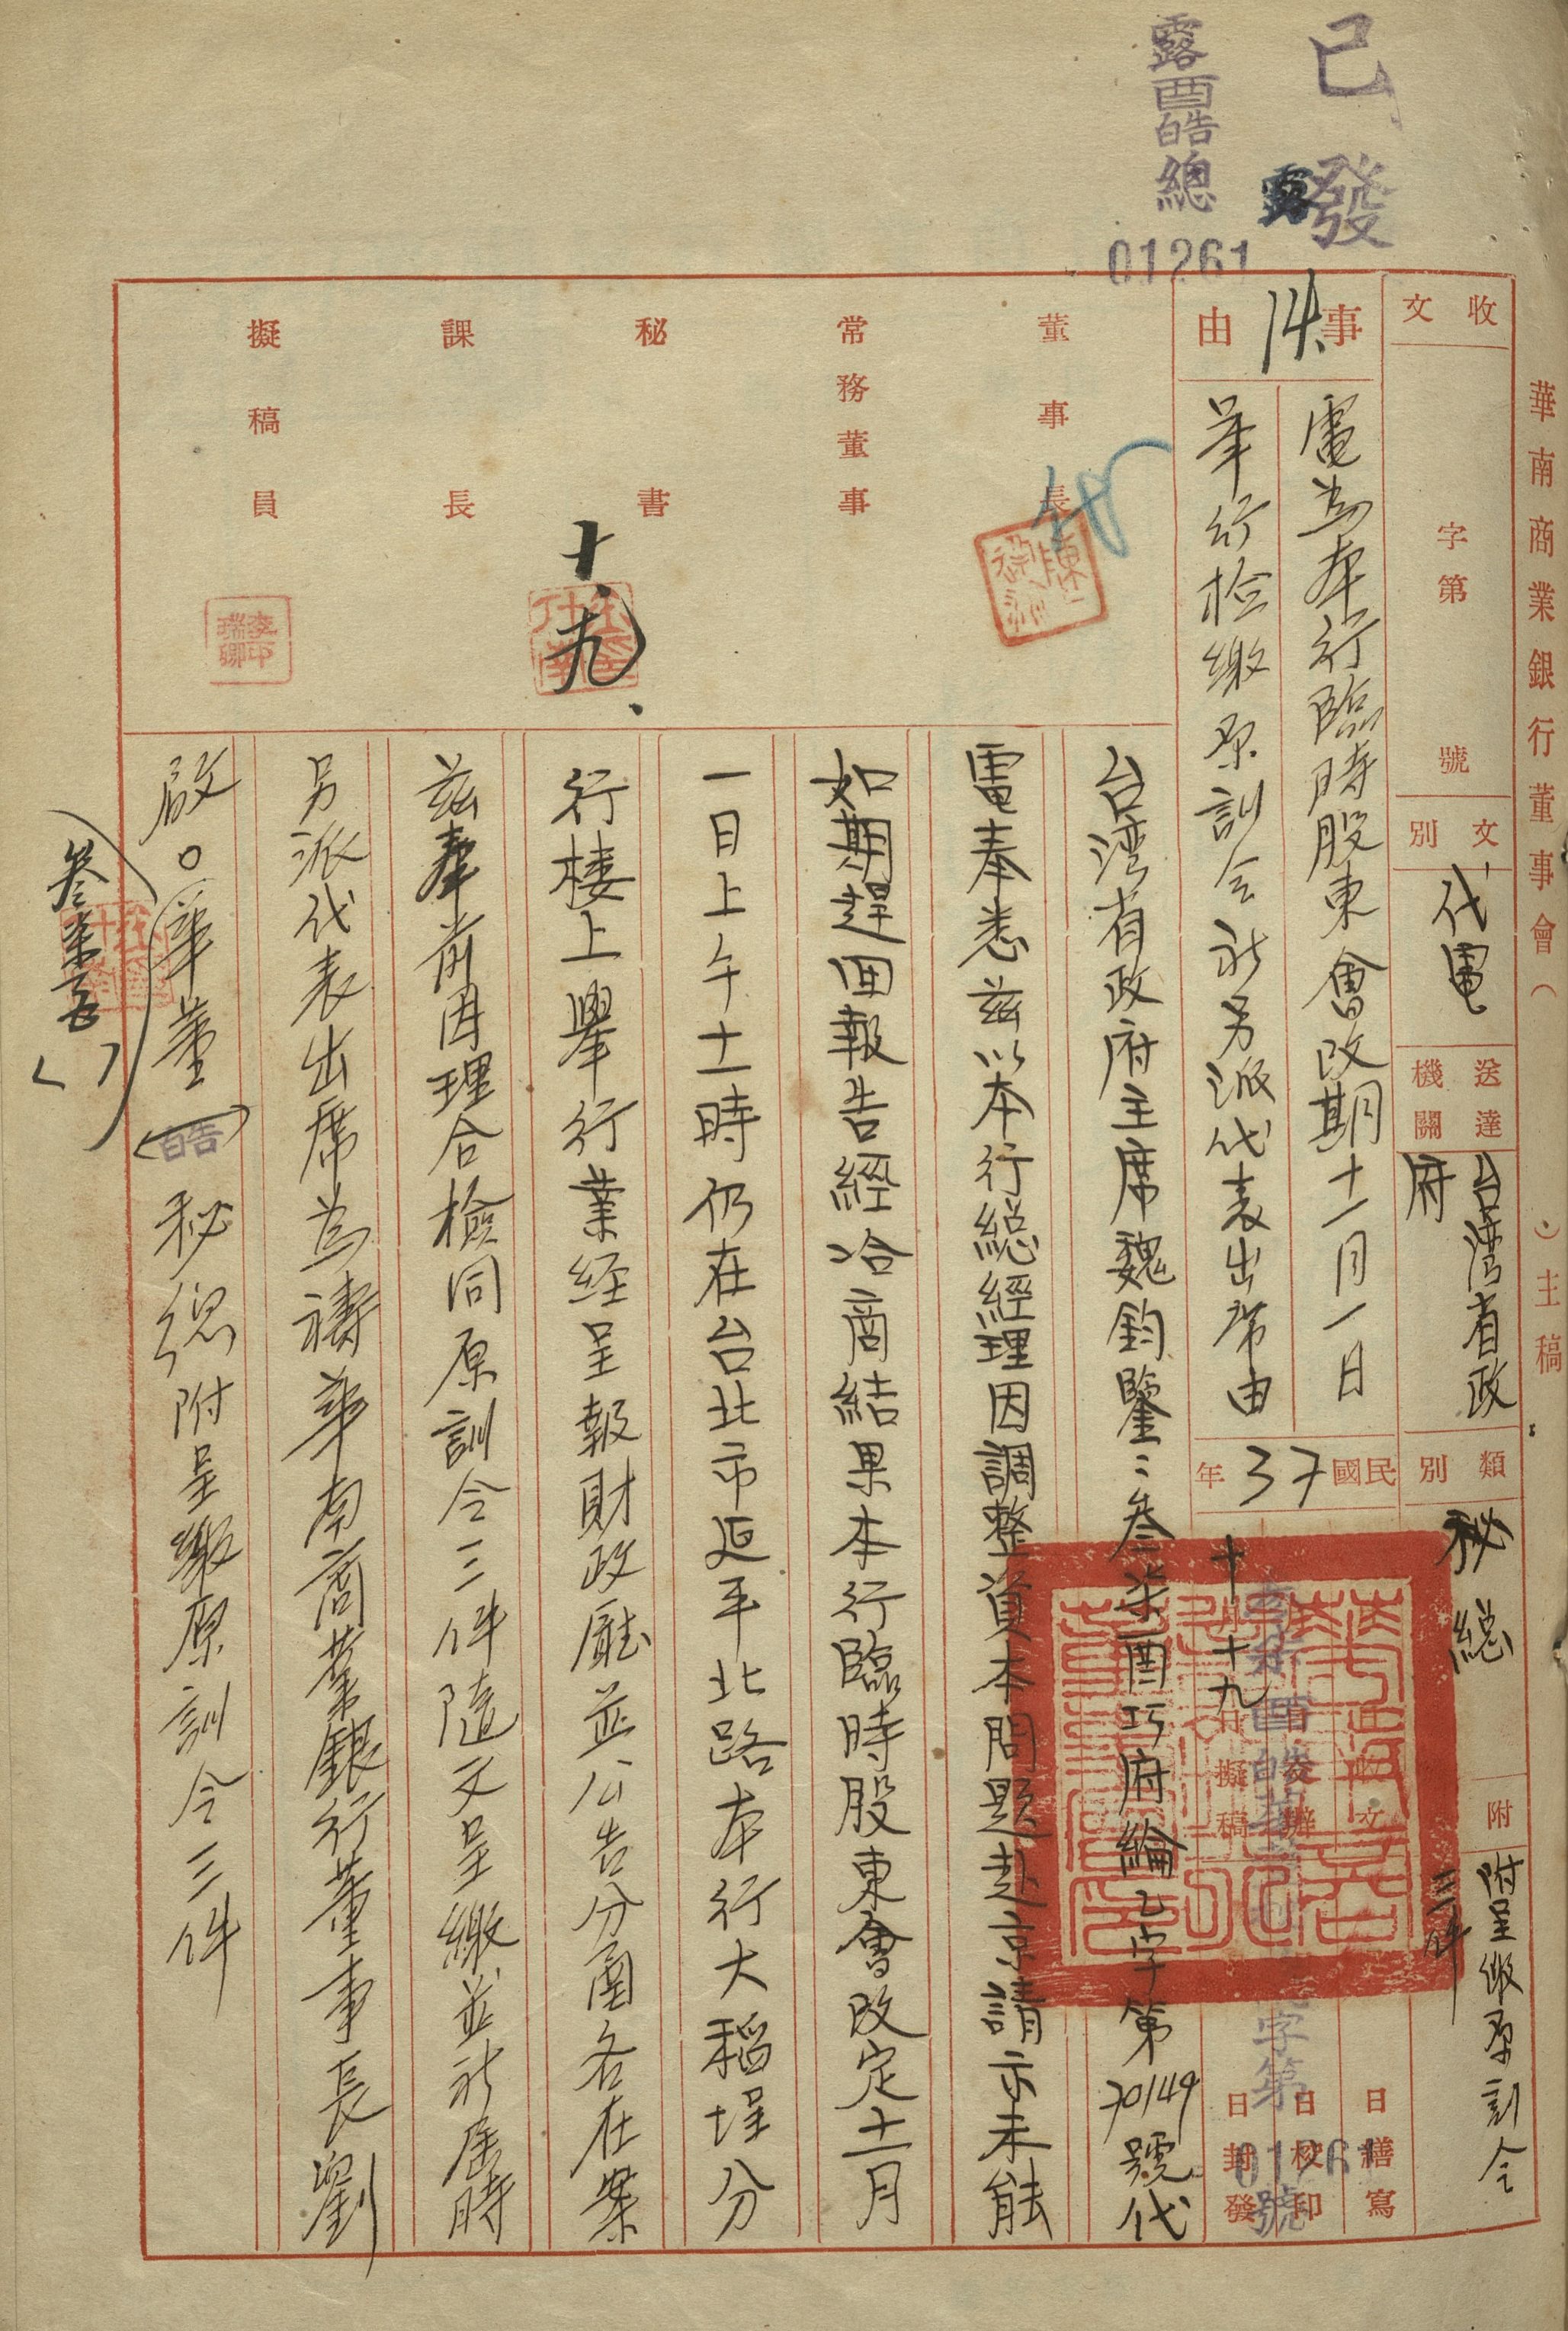 已發
露酉皓總
01261
華南商業銀行董事會（　）主稿
收文
字第
號
文別
代電
送達機關
台湾省政府
類別
秘総
附
附呈缴原訓令
三件
事由
14.
電為本行臨時股東會改期十一月一日
举行检缴原訓令祈另派代表出席由
民國37年
十月十九日擬稿
收文
日繕寫
日校印
日封發
字第01261號
董事長
常務董事
秘書
十、九、
課長
擬稿員
李瑞卿印
台湾省政府主席魏鈞鑒：叁柒酉巧府綸乙字第70149號代
電奉悉茲以本行総經理因調整資本問題赴京請示未能
如期趕回報告經洽商結果本行臨時股東會改定十一月
一日上午十一時仍在台北市延平北路本行大稻埕分
行楼上舉行業经呈報財政廳並公告分函各在案
茲奉前因理合檢同原訓令三件隨文呈繳並祈屆時
另派代表出席為禱華南商業銀行董事長劉
啟○（華董（皓）秘總附呈繳原訓令三件
叁柒